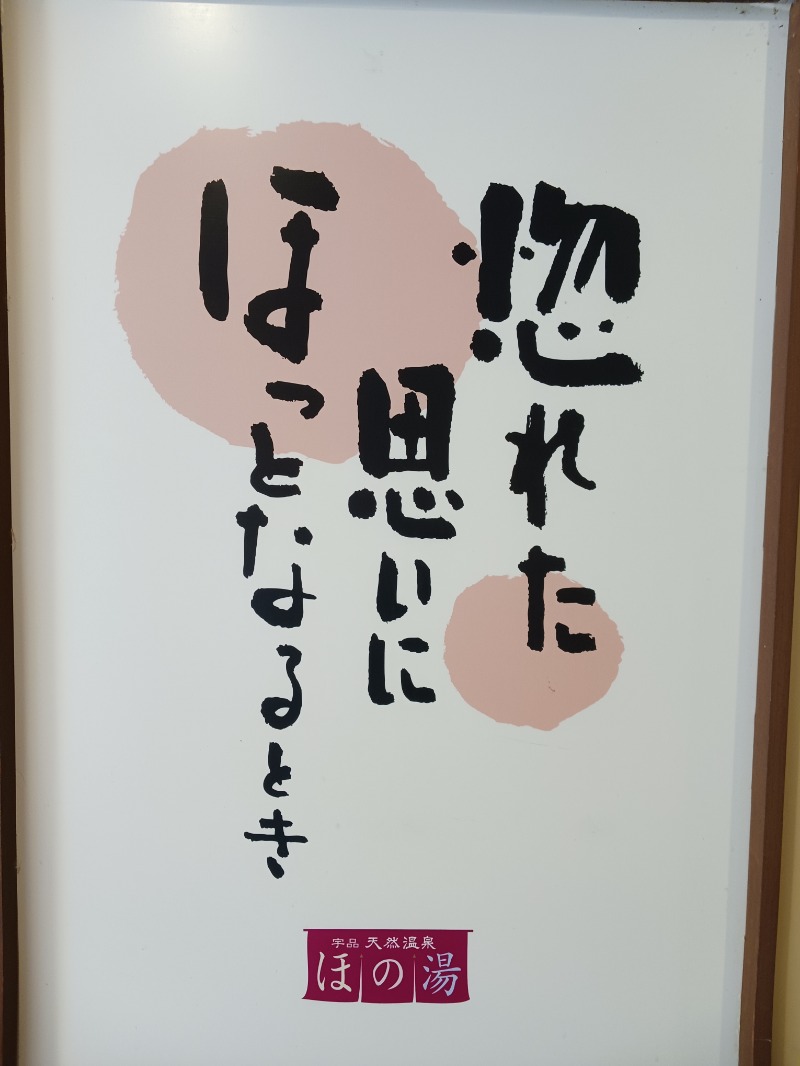 惚れた
思いに
ほっとなるとき
宇品 天然温泉
ほの湯